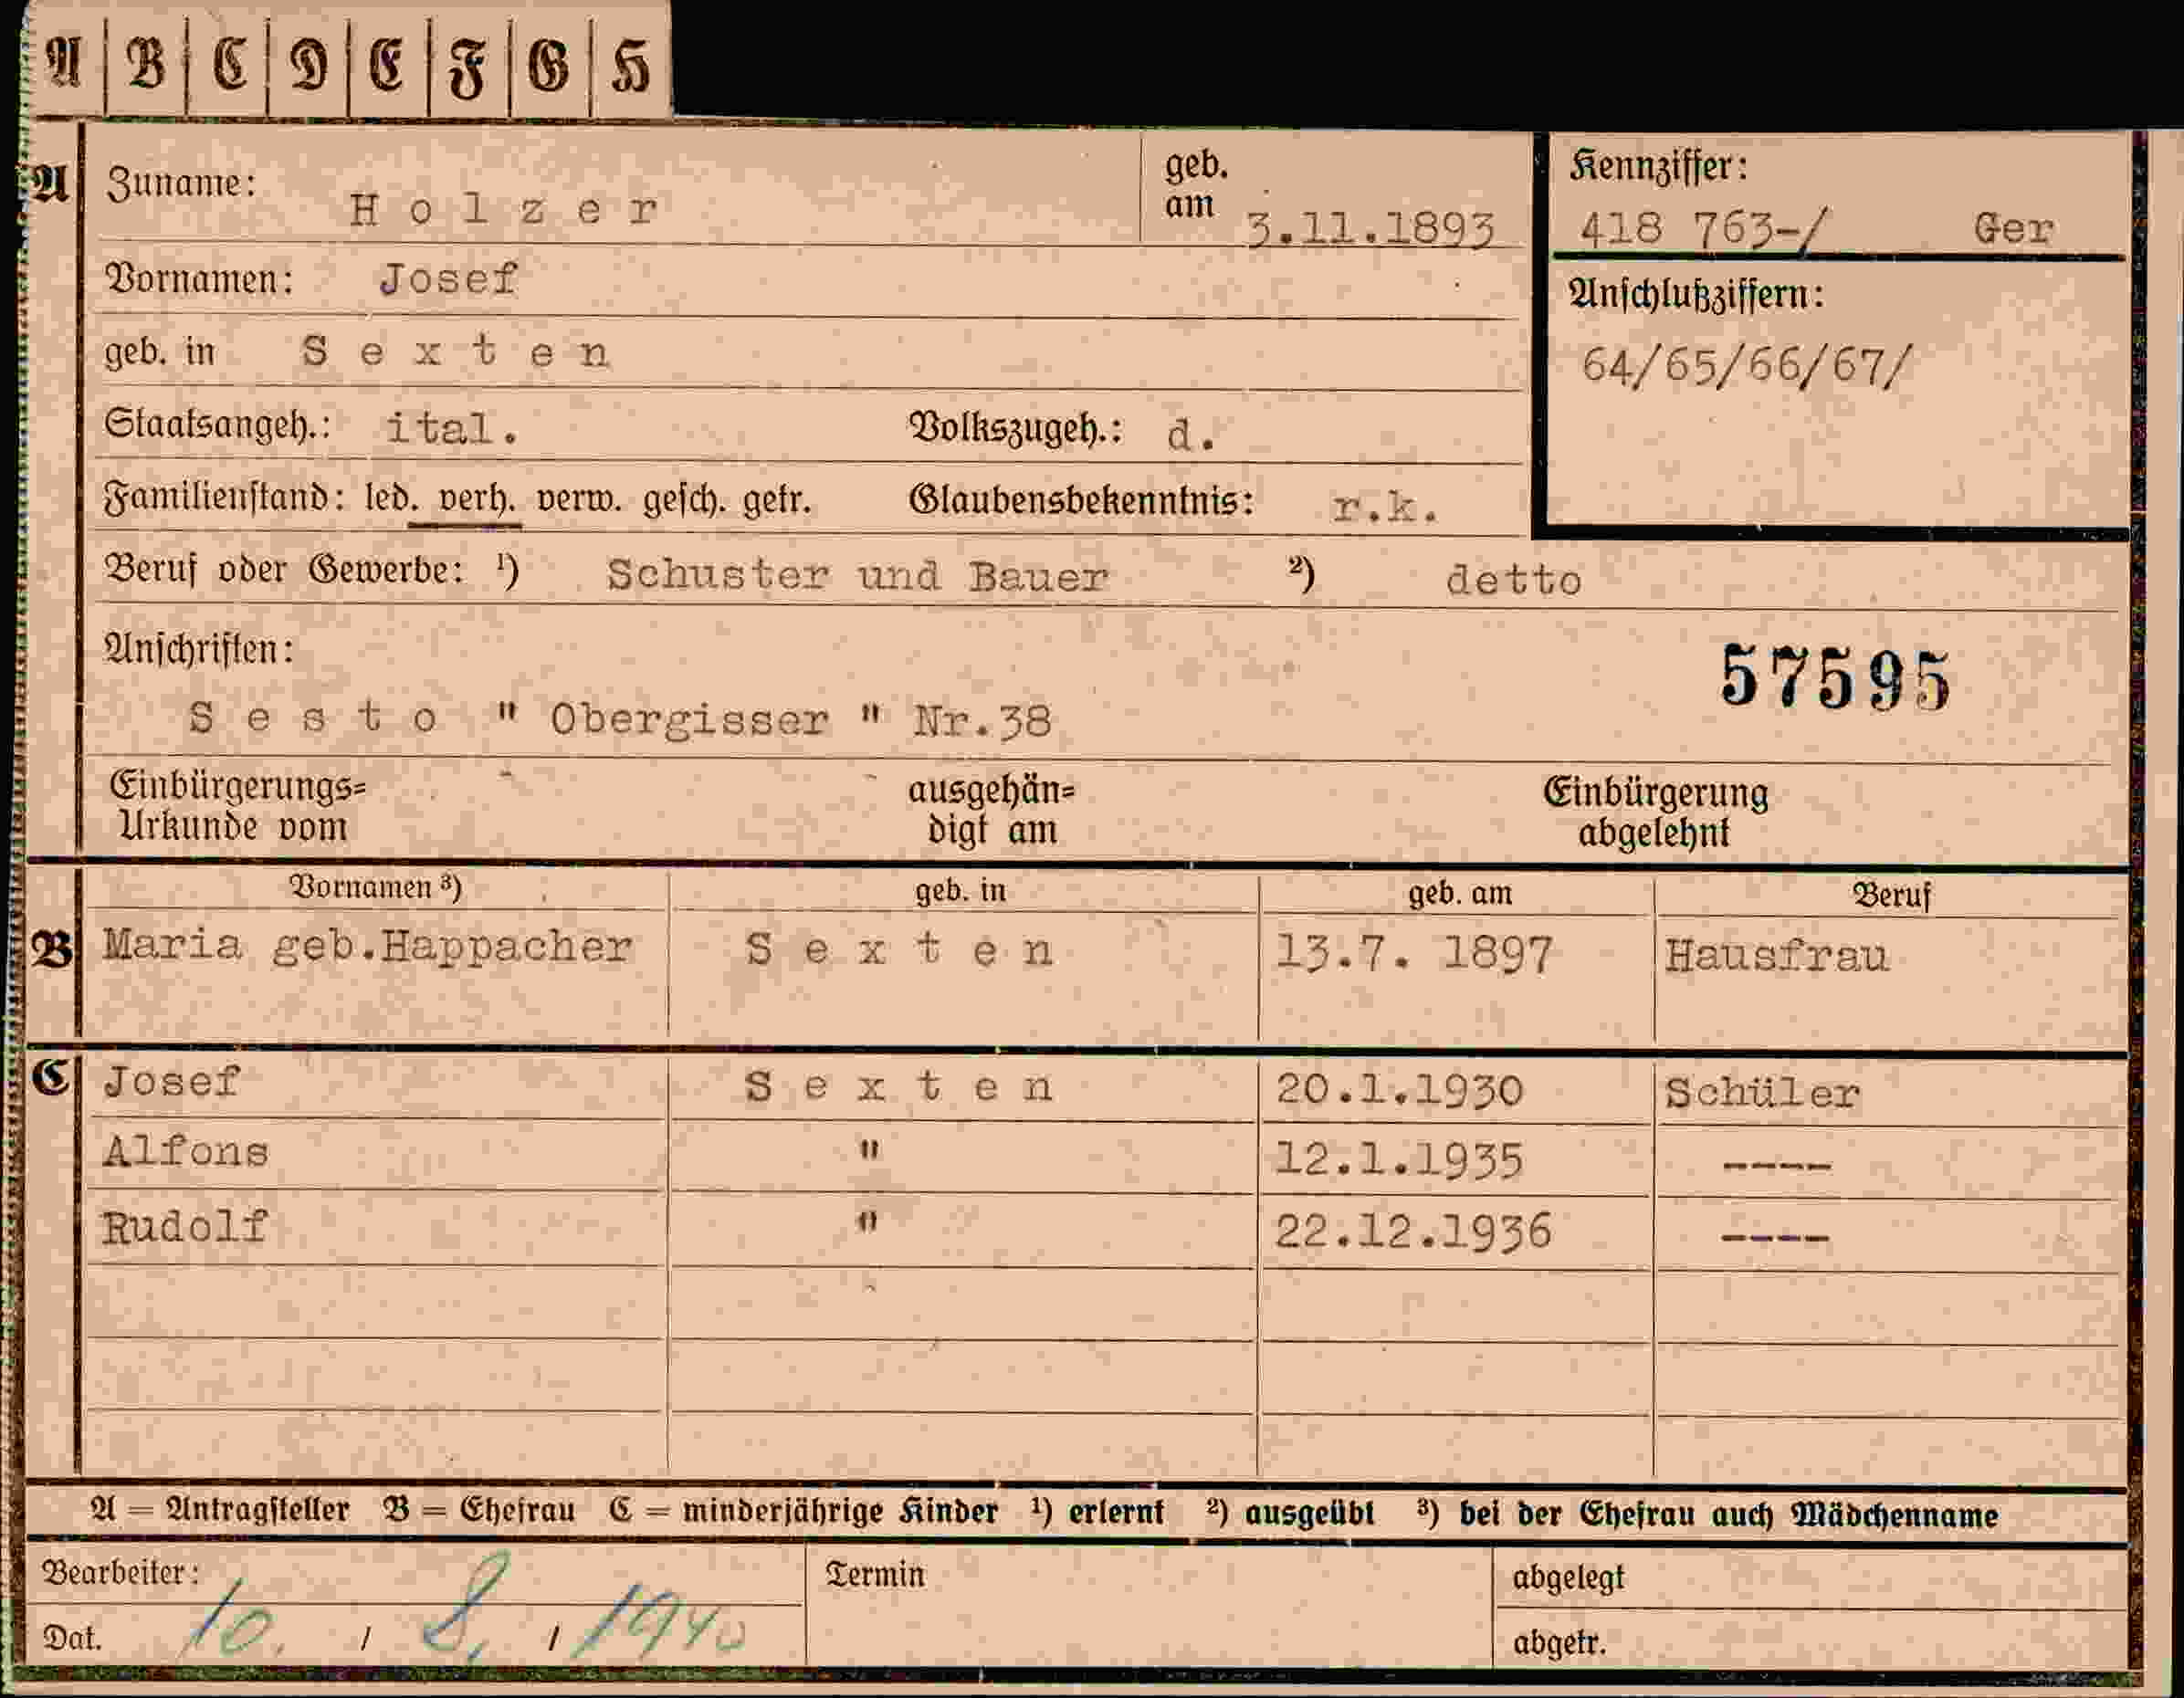 A B C D E F G H
A Zuname: Holzer geb. am 3.11.1893 Kennziffer: 418 763-/ Ger
Vornamen: Josef Anschlußziffern:
geb. in Sexten 64/65/66/67/
Staatsangeh.: ital. Volkszugeh.: d.
Familienstand: led. verh. verw. gesch. getr. Glaubensbekenntnis: r.k.
Beruf oder Gewerbe: ¹) Schuster und Bauer ²) detto
Anschriften: 57595
Sesto " Obergisser " Nr.38
Einbürgerungs= ausgehän= Einbürgerung
Urkunde vom digt am abgelehnt
Vornamen ³) geb. in geb. am Beruf
B Maria geb.Happacher Sexten 13.7. 1897 Hausfrau
C Josef Sexten 20.1.1930 Schüler
Alfons " 12.1.1935 ----
Rudolf " 22.12.1936 ----
A = Antragsteller B = Ehefrau C = minderjährige Kinder ¹) erlernt ²) ausgeübt ³) bei der Ehefrau auch Mädchenname
Bearbeiter: Termin abgelegt
Dat. 10. / 8. / 1940 abgetr.